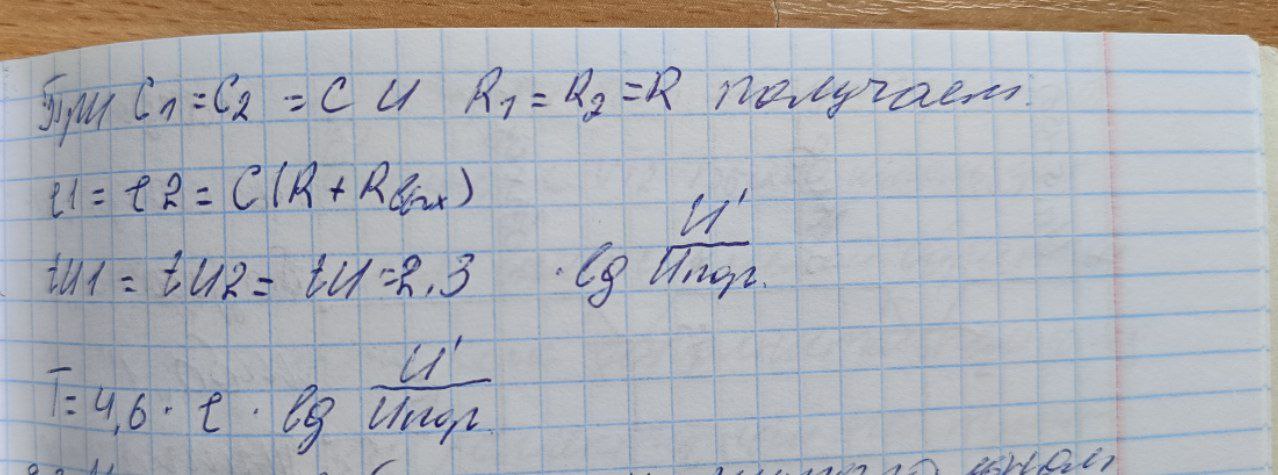 При C1 = C2 = C и R1 = R2 = R получаем.
τ1 = τ2 = C(R + Rвых)
tи1 = tи2 = tи = 2,3 · lg U'/Uпор.
T = 4,6 · τ · lg U'/Uпор.